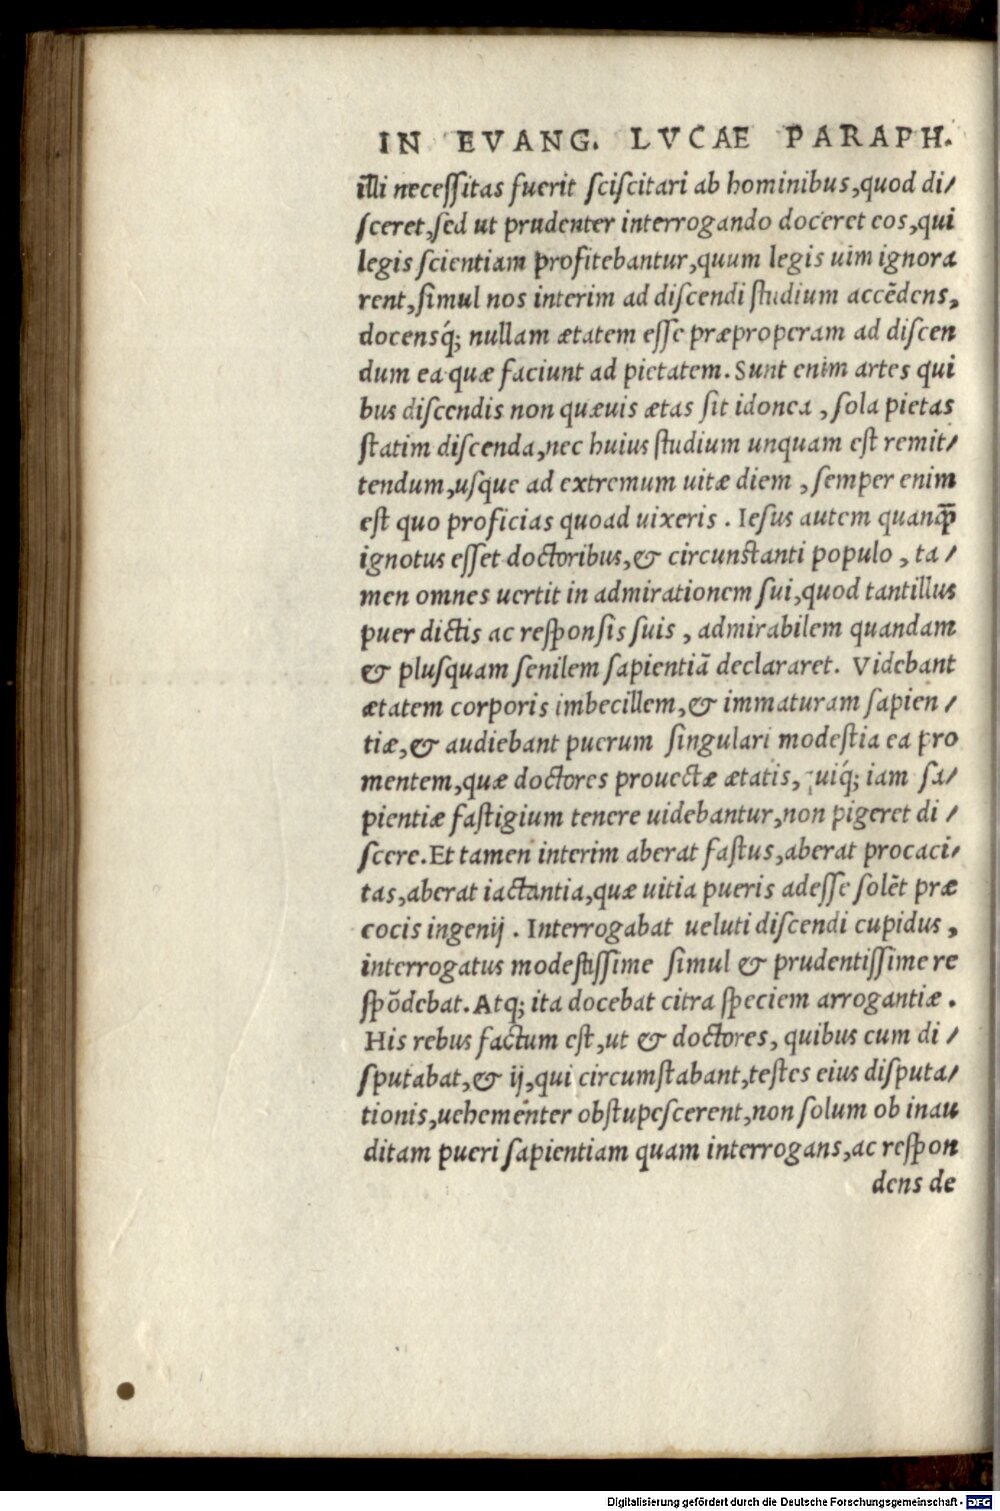 IN EVANG. LVCAE PARAPH.
illi necessitas fuerit sciscitari ab hominibus,quod di/
sceret,sed ut prudenter interrogando doceret eos,qui
legis scientiam profitebantur,quum legis uim ignora
rent,simul nos interim ad discendi studium accẽdens,
docensq́; nullam ætatem esse præproperam ad discen
dum ea quæ faciunt ad pietatem. Sunt enim artes qui
bus discendis non quæuis ætas sit idonea , sola pietas
statim discenda,nec huius studium unquam est remit/
tendum,usque ad extremum uitæ diem , semper enim
est quo proficias quoad uixeris . Iesus autem quanꝗ̃
ignotus esset doctoribus,& circunstanti populo , ta /
men omnes uertit in admirationem sui,quod tantillus
puer dictis ac responsis suis , admirabilem quandam
& plusquam senilem sapientiã declararet. Videbant
ætatem corporis imbecillem,& immaturam sapien /
tiæ,& audiebant puerum singulari modestia ea pro
mentem,quæ doctores prouectæ ætatis, quiq́; iam sa/
pientiæ fastigium tenere uidebantur,non pigeret di /
scere.Et tamen interim aberat fastus,aberat procaci/
tas,aberat iactantia,quæ uitia pueris adesse solẽt præ
cocis ingenij . Interrogabat ueluti discendi cupidus ,
interrogatus modestissime simul & prudentissime re
spõdebat. Atq; ita docebat citra speciem arrogantiæ .
His rebus factum est,ut & doctores, quibus cum di /
sputabat,& ij,qui circumstabant,testes eius disputa/
tionis,uehementer obstupescerent,non solum ob inau
ditam pueri sapientiam quam interrogans,ac respon
dens de
Digitalisierung gefördert durch die Deutsche Forschungsgemeinschaft - DFG